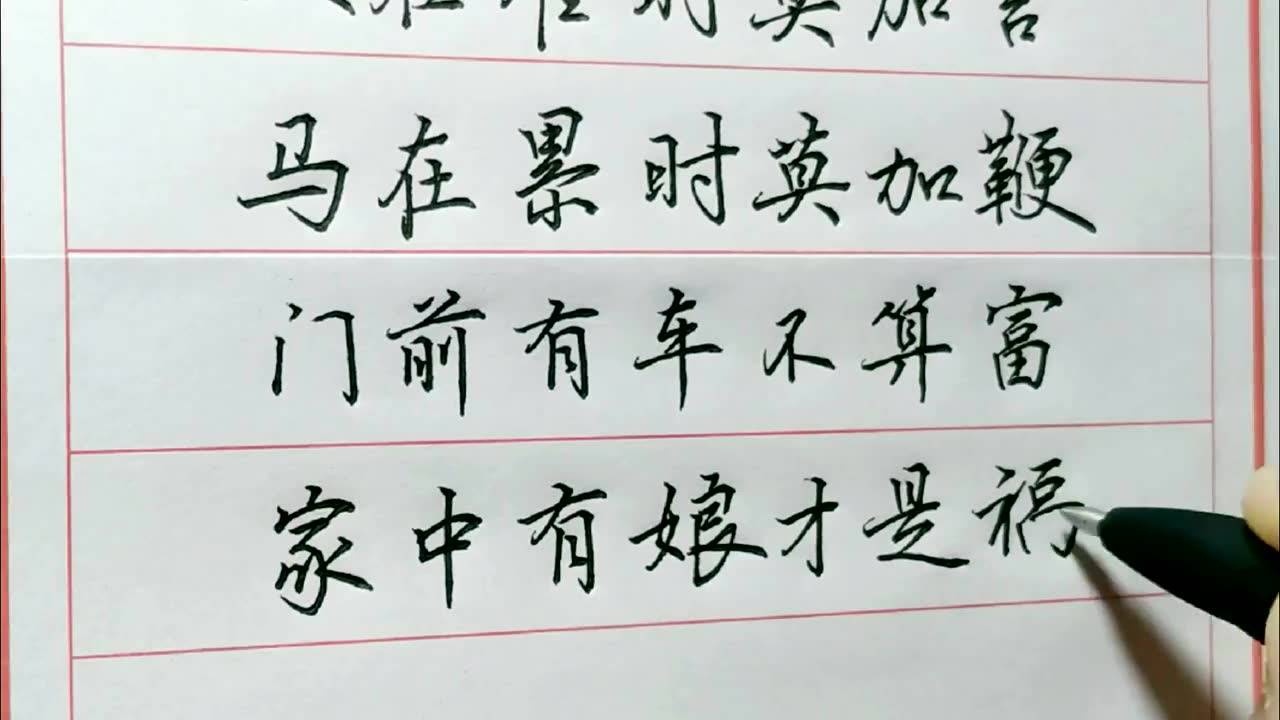 时莫加
马在累时莫加鞭
门前有车不算富
家中有娘才是福